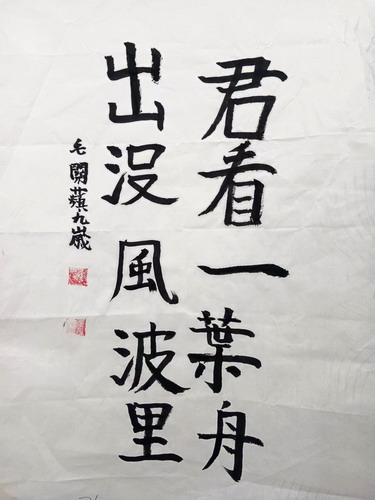 君看一葉舟
出没風波里
毛関蘋九歲